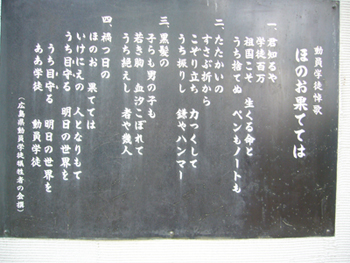 動員学徒悼歌
ほのお果てては
一、君知るや
学徒百万
祖国こそ 生くる命と
うち捨てぬ ペンもノートも
二、たたかいの
すさぶ折から
こぞり立ち 力つくして
うち振りし 鎌やハンマー
三、黒髪の
子らも男の子も
若き胸 血汐こぼれて
うち絶えし 者や幾人
四、禍つ日の
ほのお 果てては
いけにえの 人となりもて
うち目守る 明日の世界を
うち目守る 明日の世界を
ああ学徒 動員学徒
(広島県動員学徒犠牲者の会撰)